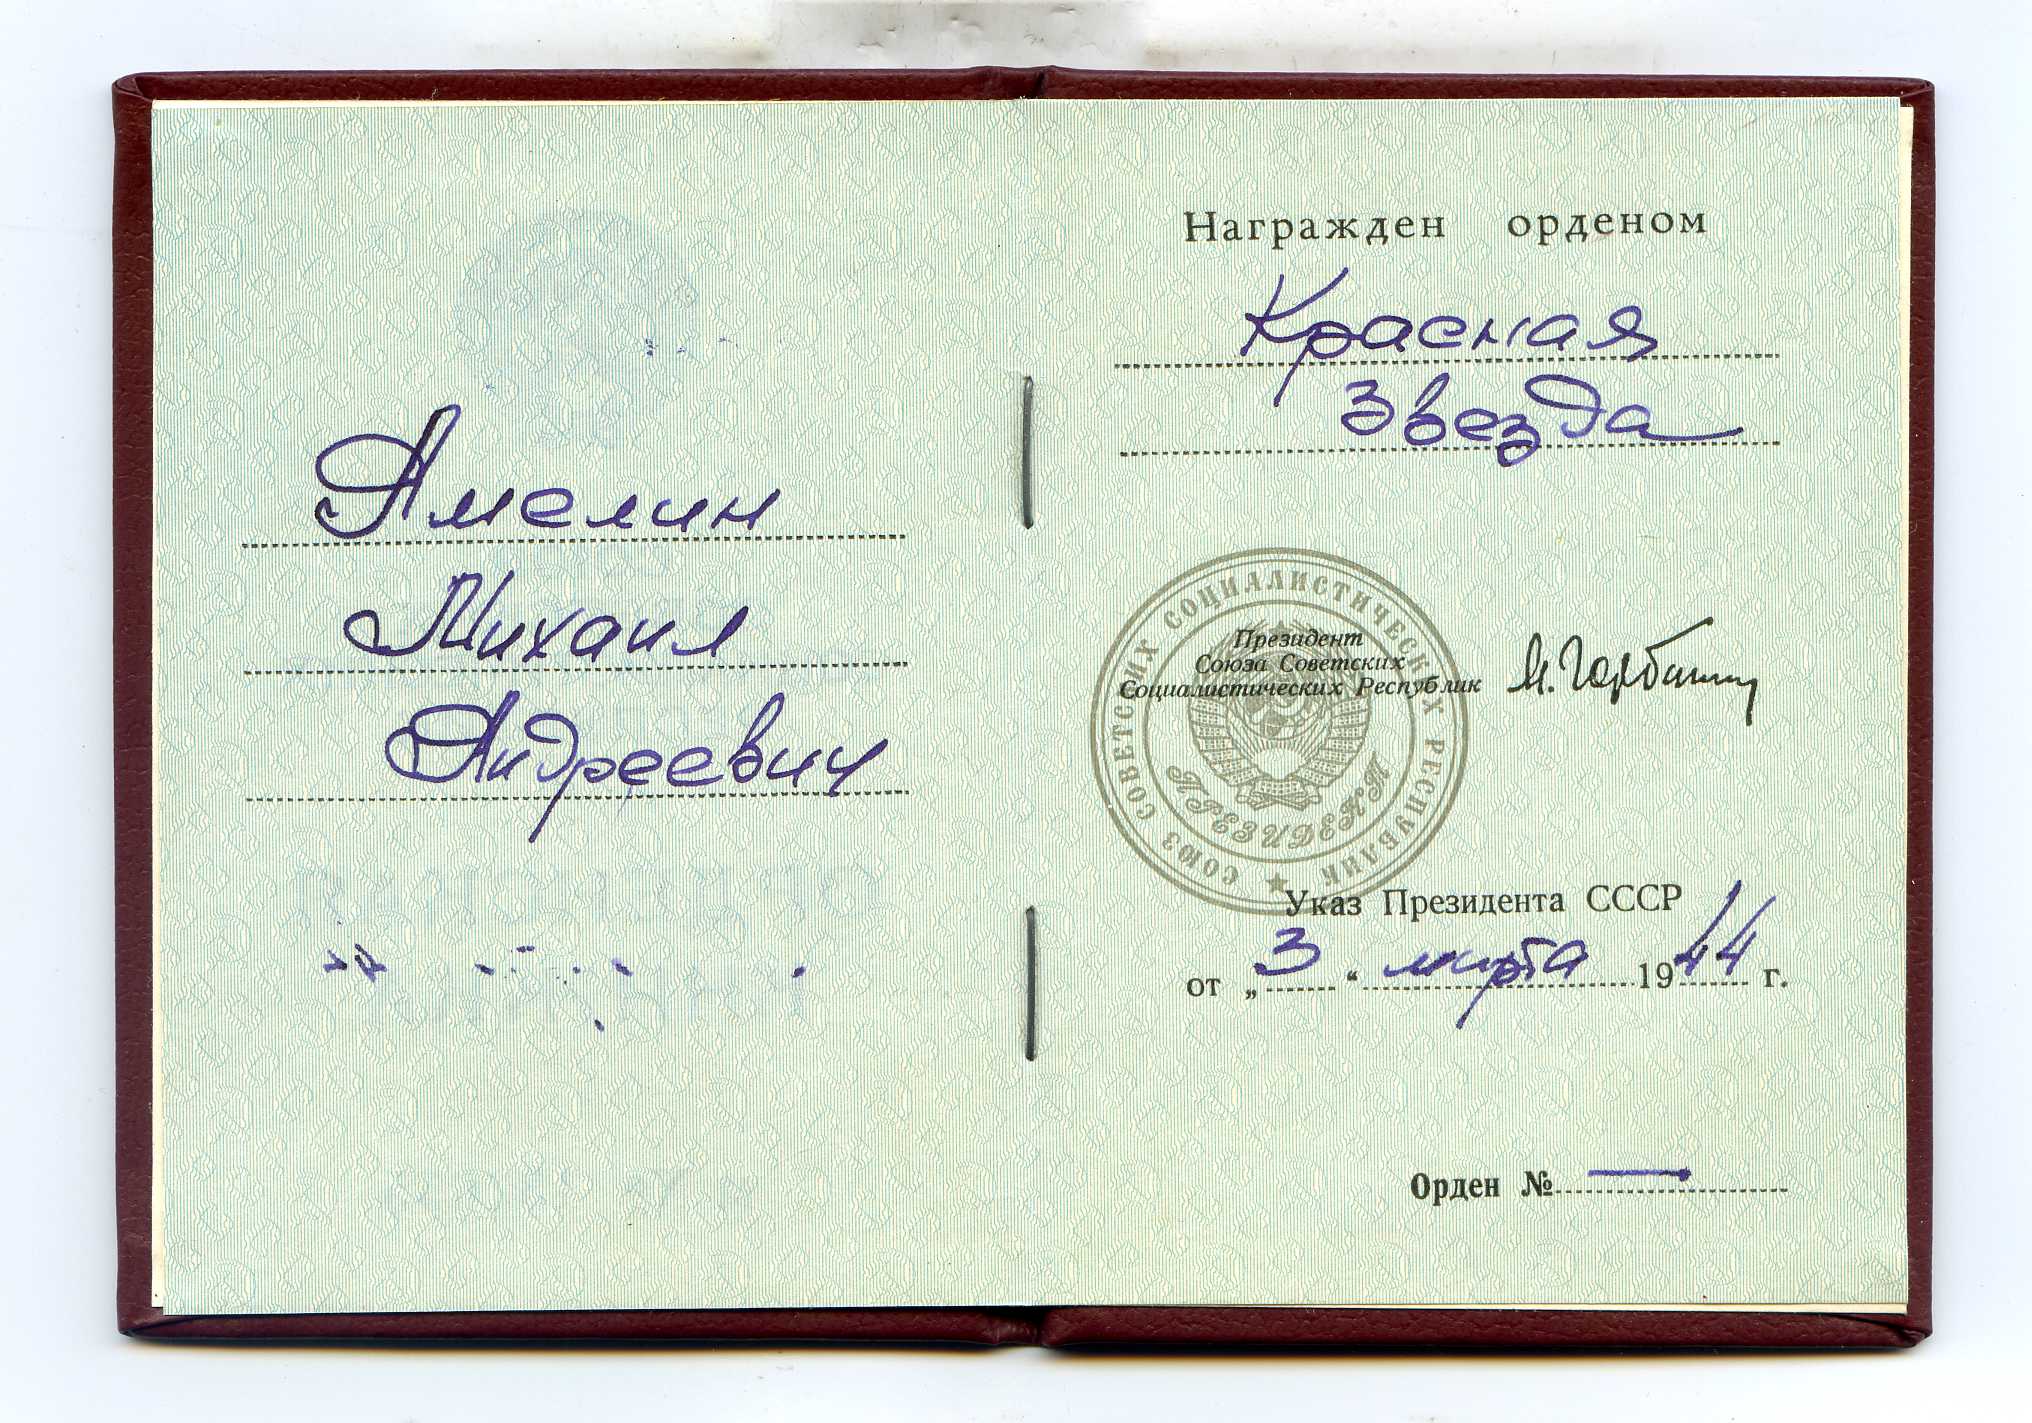 Амелин
Михаил
Андреевич
Награжден орденом
Красная
Звезда
СОЮЗ СОВЕТСКИХ СОЦИАЛИСТИЧЕСКИХ РЕСПУБЛИК
ПРЕЗИДЕНТ
Президент
Союза Советских
Социалистических Республик М. Горбачев
Указ Президента СССР
от „3“ марта 1944 г.
Орден № —